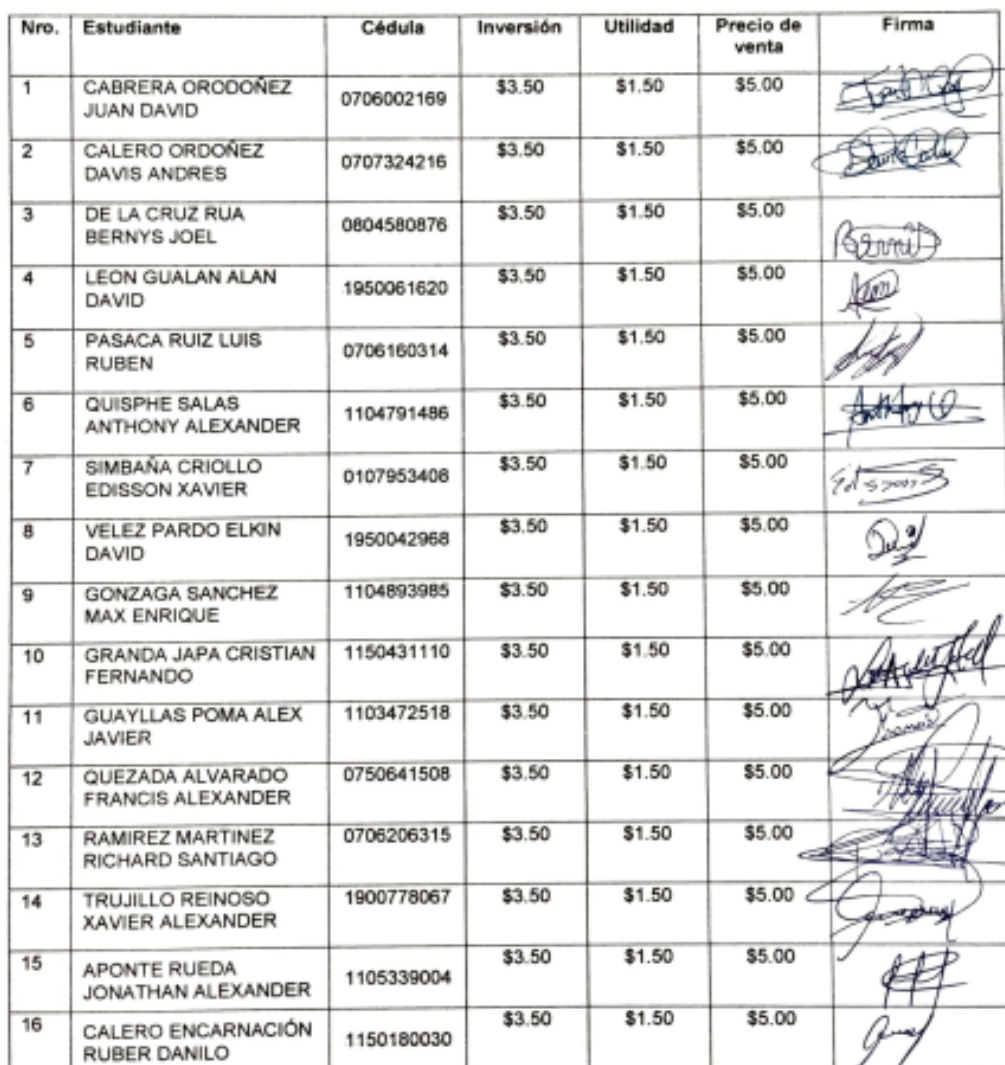 Nro. Estudiante Cédula Inversión Utilidad Precio de venta Firma
1 CABRERA ORODOÑEZ JUAN DAVID 0706002169 $3.50 $1.50 $5.00
2 CALERO ORDOÑEZ DAVIS ANDRES 0707324216 $3.50 $1.50 $5.00
3 DE LA CRUZ RUA BERNYS JOEL 0804580876 $3.50 $1.50 $5.00
4 LEON GUALAN ALAN DAVID 1950061620 $3.50 $1.50 $5.00
5 PASACA RUIZ LUIS RUBEN 0706160314 $3.50 $1.50 $5.00
6 QUISPHE SALAS ANTHONY ALEXANDER 1104791486 $3.50 $1.50 $5.00
7 SIMBAÑA CRIOLLO EDISSON XAVIER 0107953408 $3.50 $1.50 $5.00
8 VELEZ PARDO ELKIN DAVID 1950042968 $3.50 $1.50 $5.00
9 GONZAGA SANCHEZ MAX ENRIQUE 1104893985 $3.50 $1.50 $5.00
10 GRANDA JAPA CRISTIAN FERNANDO 1150431110 $3.50 $1.50 $5.00
11 GUAYLLAS POMA ALEX JAVIER 1103472518 $3.50 $1.50 $5.00
12 QUEZADA ALVARADO FRANCIS ALEXANDER 0750641508 $3.50 $1.50 $5.00
13 RAMIREZ MARTINEZ RICHARD SANTIAGO 0706206315 $3.50 $1.50 $5.00
14 TRUJILLO REINOSO XAVIER ALEXANDER 1900778067 $3.50 $1.50 $5.00
15 APONTE RUEDA JONATHAN ALEXANDER 1105339004 $3.50 $1.50 $5.00
16 CALERO ENCARNACIÓN RUBER DANILO 1150180030 $3.50 $1.50 $5.00